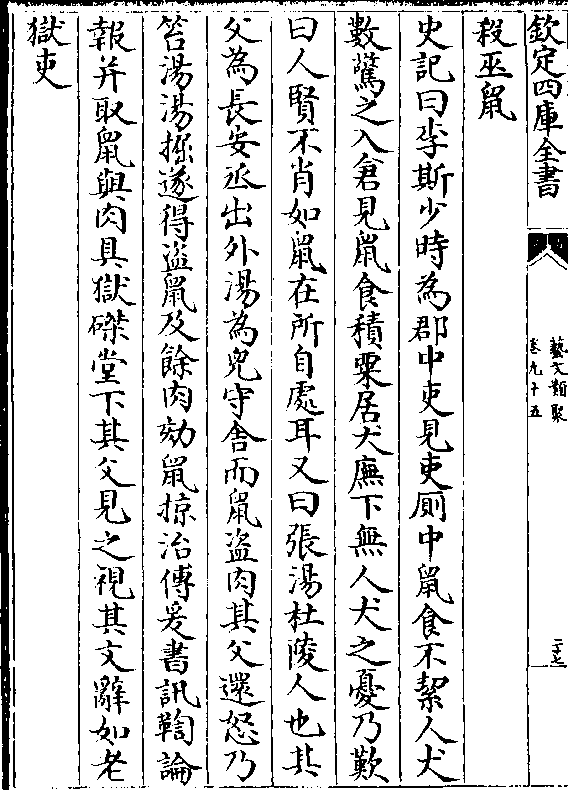 欽定四庫全書
藝文類聚
卷九十五
二十七
殺巫鼠
史記曰李斯少時為郡中吏見吏厠中鼠食不絜人犬
數驚之入倉見鼠食積粟居大廡下無人犬之憂乃歎
曰人賢不肖如鼠在所自處耳又曰張湯杜陵人也其
父為長安丞出外湯為兒守舍而鼠盜肉其父還怒乃
笞湯湯掘遂得盜鼠及餘肉劾鼠掠治傳爰書訊鞫論
報并取鼠與肉具獄磔堂下其父見之視其文辭如老
獄吏